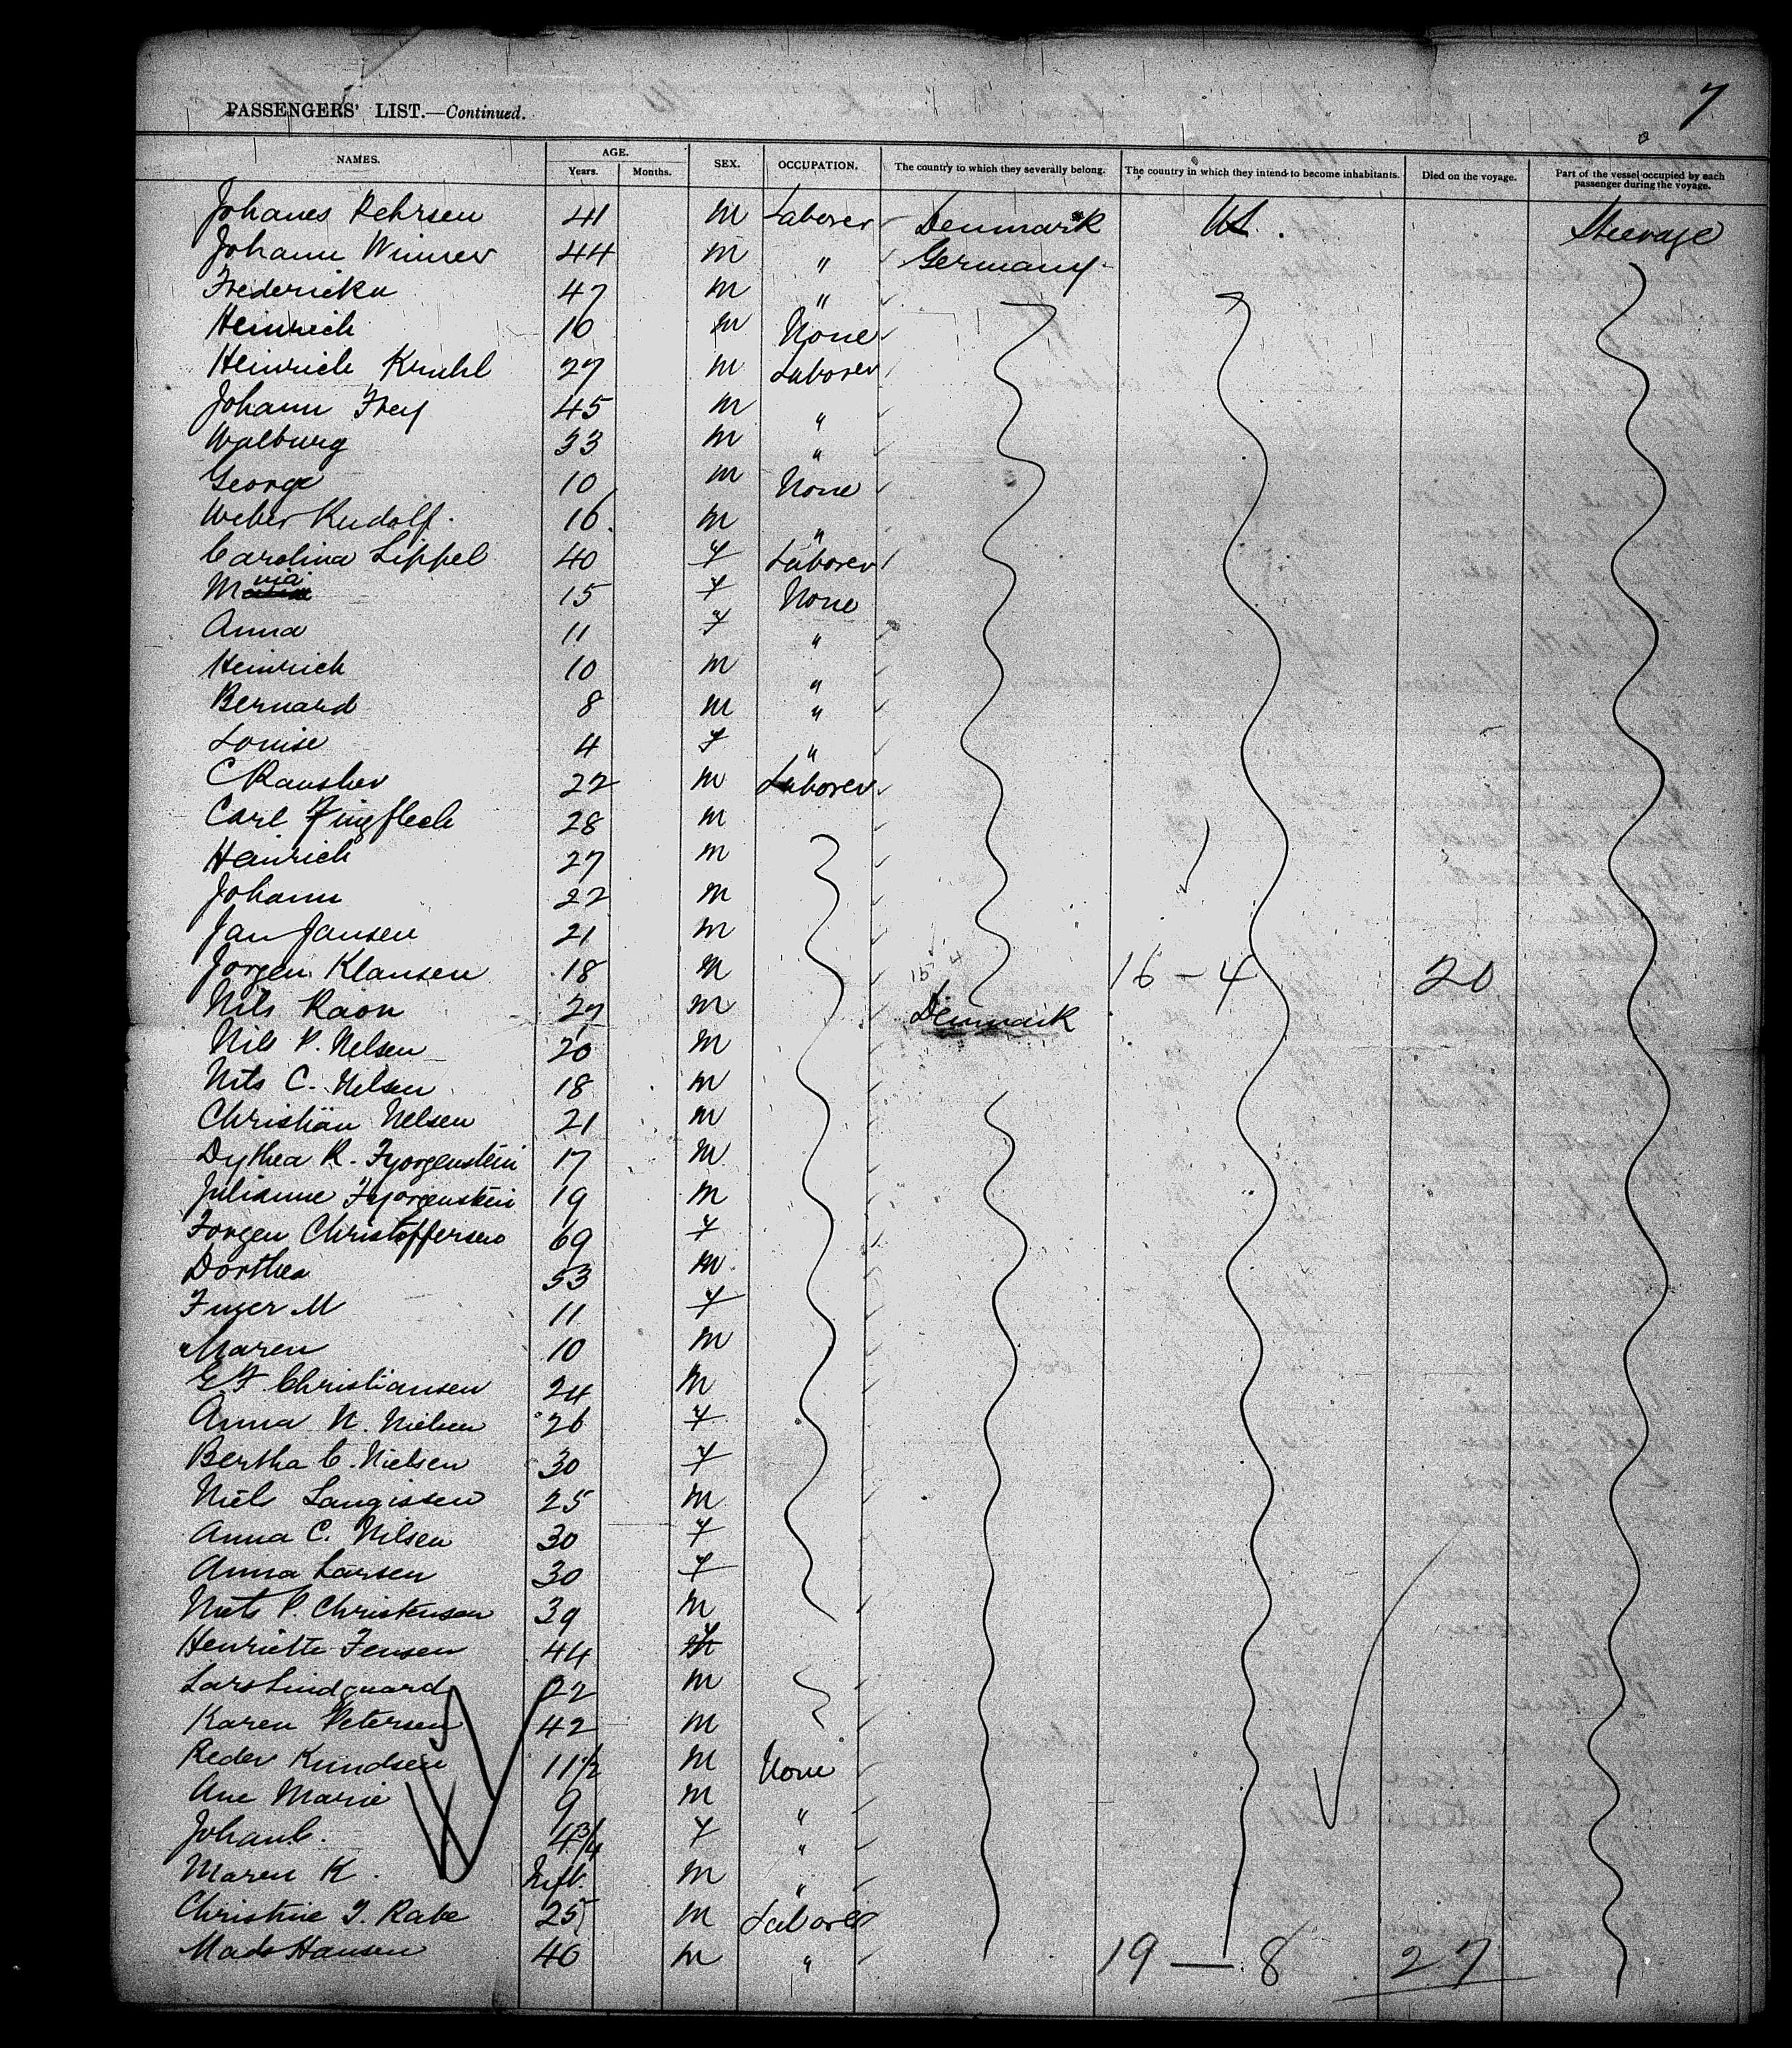 7
PASSENGERS' LIST.—Continued.
NAMES. AGE. Years. Months. SEX. OCCUPATION. The country to which they severally belong. The country in which they intend to become inhabitants. Died on the voyage. Part of the vessel occupied by each passenger during the voyage.
Johanes Pehrsen 41 M Laborer Denmark US. Steerage
Johann Wimmer 44 M " Germany
Fredericka 47 M "
Heinrich 10 M None
Heinrich Kruhl 27 M Laborer
Johann Frey 45 M "
Walburg 33 M "
George 10 M None
Weber Rudolf. 16 M "
Carolina Lippel 40 F Laborer
Maria 15 F None
Anna 11 F "
Heinrich 10 M "
Bernard 8 M "
Louise 4 F "
C Rausher 22 M Laborer
Carl Fingflech 28 M
Heinrich 27 M
Johann 22 M
Jan Jansen 21 M
Jorgen Klansen 18 M 15 4 16 - 4 20
Nils Raon 27 M Denmark
Nils P. Nelsen 20 M
Nils C. Nelsen 18 M
Christian Nelsen 21 M
Dythea R. Fjorgenstein 17 M
Julianne Fjorgenstein 19 M
Jorgen Christoffersen 69 F
Dorthea 53 M
Inger M 11 F
Maren 10 M
G F Christiansen 24 M
Anna N. Nielsen 26 F
Bertha C. Nielsen 30 F
Niels Langissen 25 M
Anna C. Nilsen 30 F
Anna Larsen 30 F
Niels P. Christensen 39 M
Henriette Jensen 44 F
Lars Lindguard 22 M
Karen Petersen 42 M
Peder Kundsen 11 1/2 M None
Ane Marie 9 M "
Johan C. 4 3/4 F "
Maren K. Inft. M "
Christine J. Rabe 25 M Laborer
Mads Hansen 40 M " 19 — 8 27